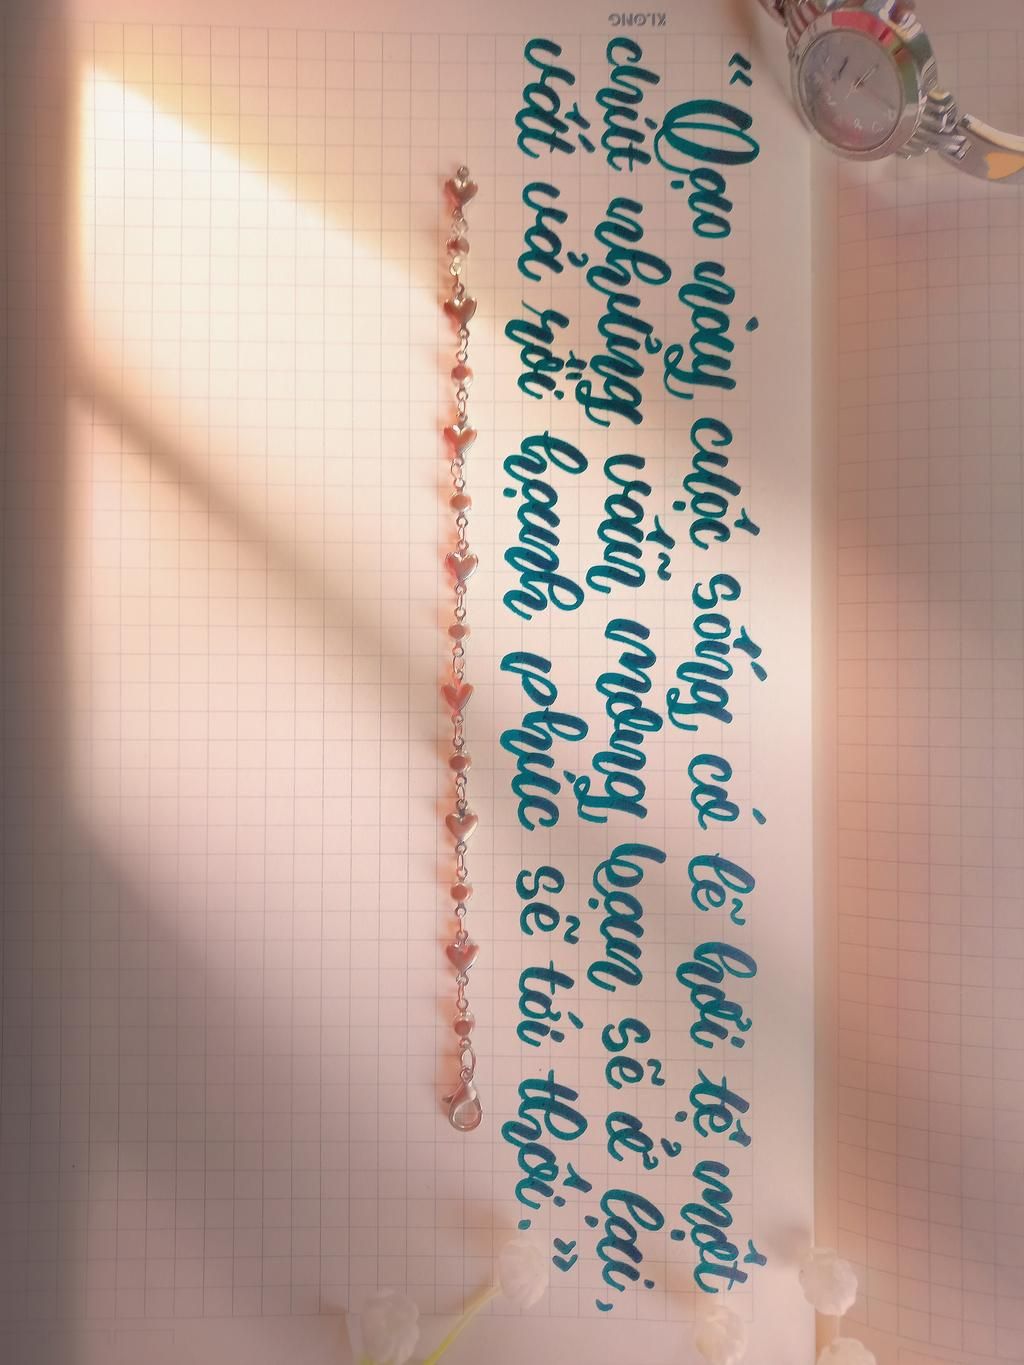 KLONG
“Dạo này, cuộc sống có lẽ hơi tệ một
chút nhưng vẫn mong bạn sẽ ở lại,
vất vả rồi hạnh phúc sẽ tới thôi.”